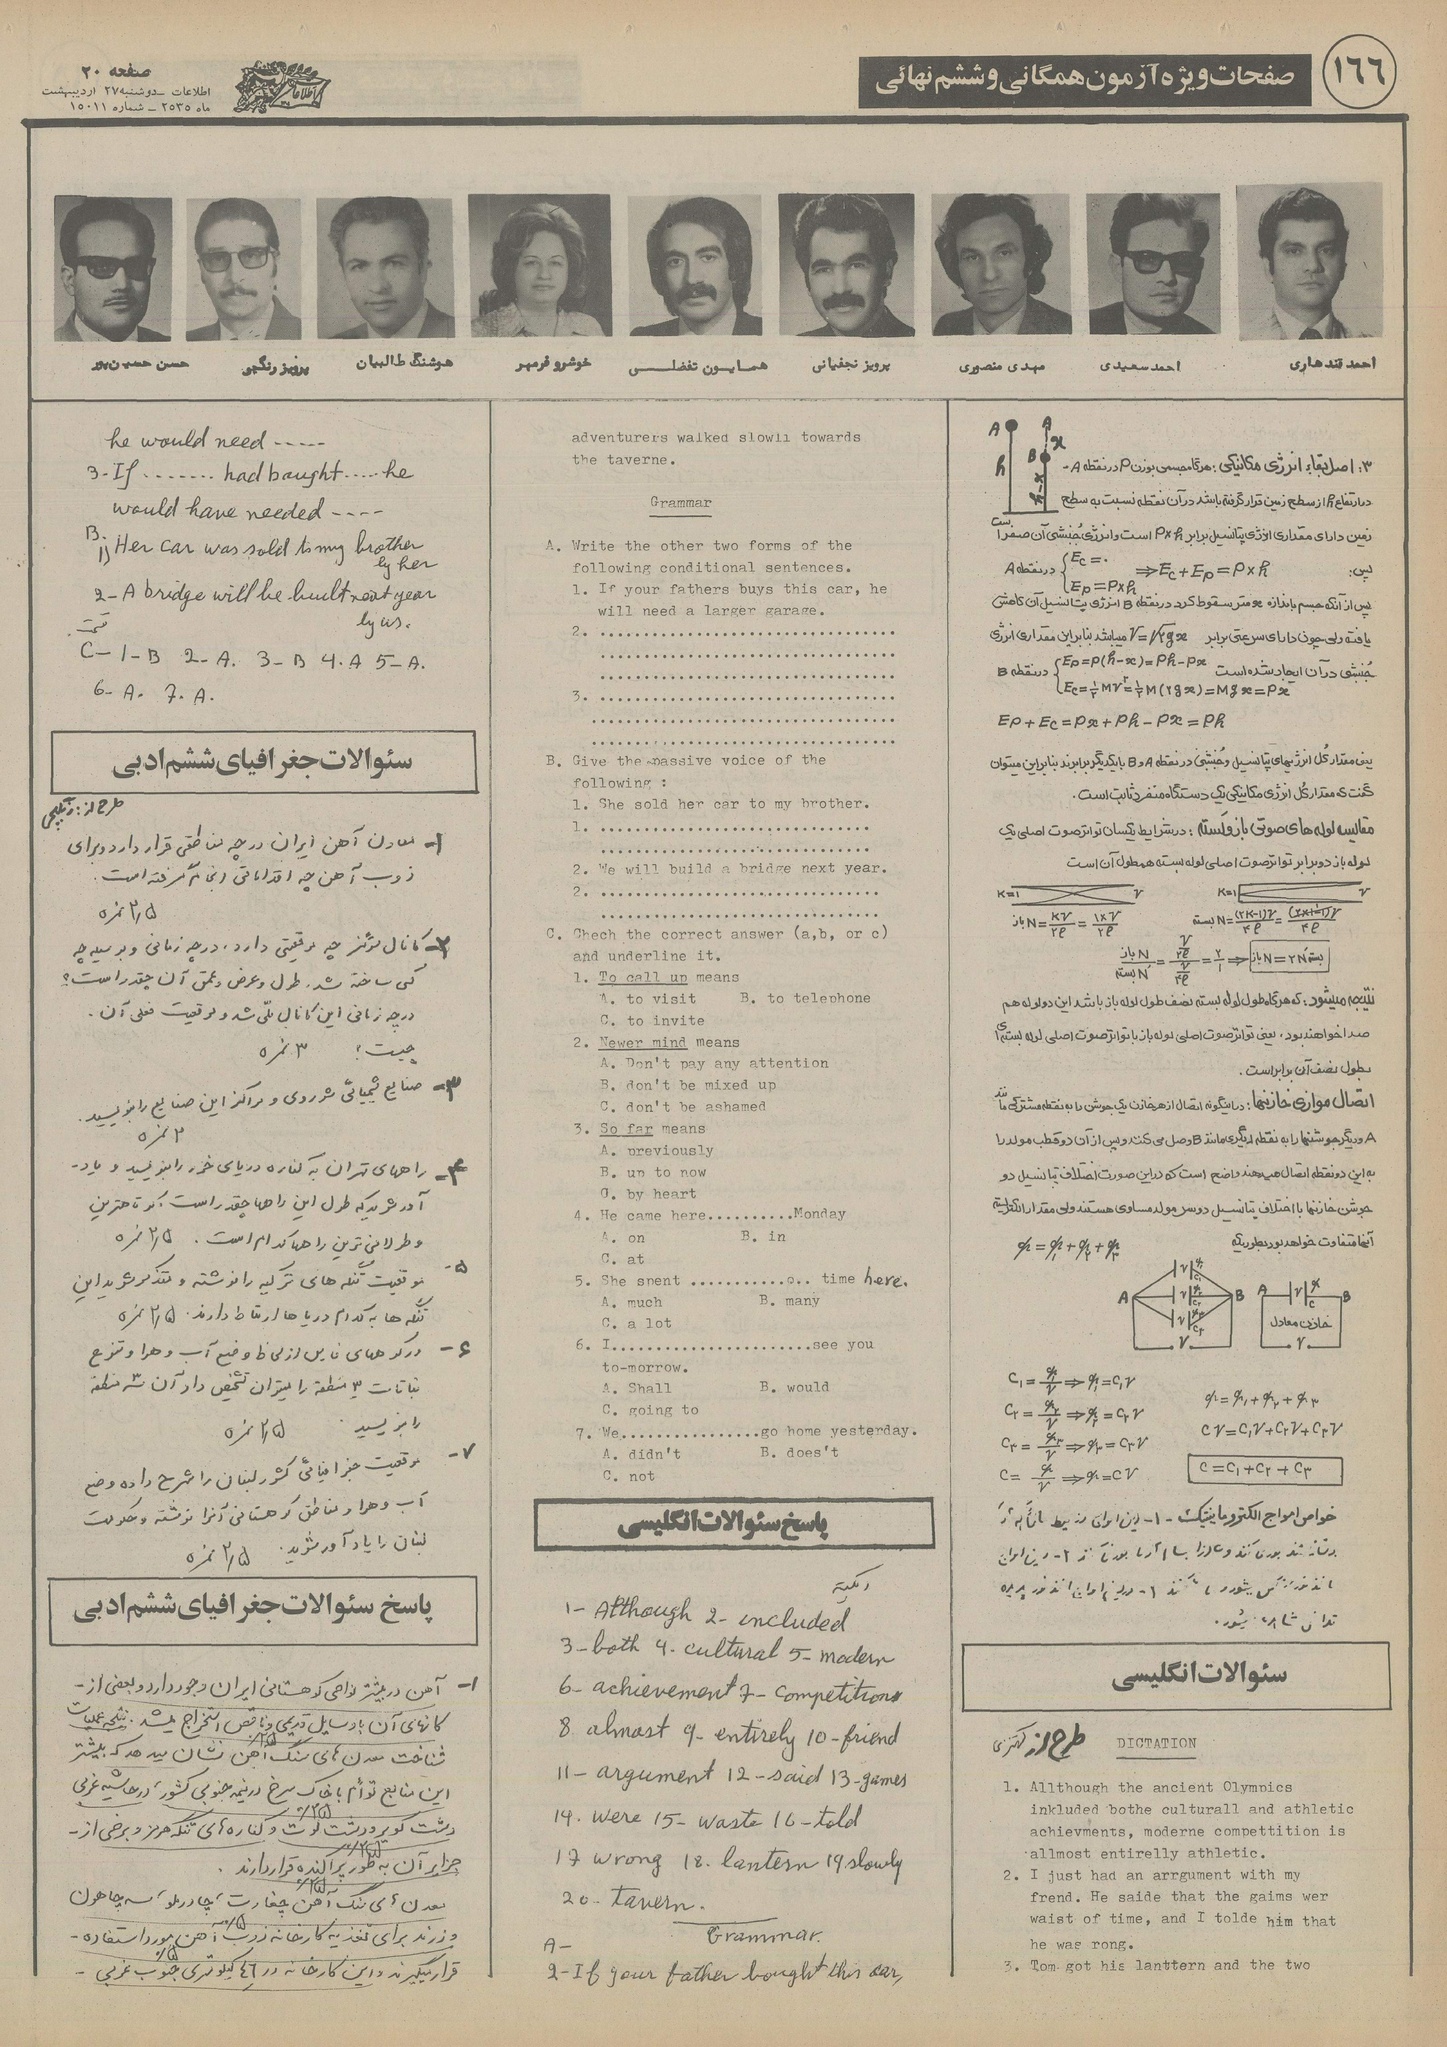 صفحات ویژه آزمون همگانی و ششم نهائی
۱۶۶
صفحه ۲۰
اطلاعات ـ دوشنبه ۲۷ اردیبهشت
ماه ۲۵۳۵ ـ شماره ۱۵۰۱۱
احمد قندهاری
احمد سعیدی
مهدی منصوری
پرویز نجفیانی
همایون تفضلی
خوشرو فرمهر
هوشنگ طالبیان
پرویز رنگجو
حسن حسین‌پور
۳: اصل بقاء انرژی مکانیکی: هرگاه جسمی بوزن P در نقطه A -
در ارتفاع h از سطح زمین قرار گرفته باشد در آن نقطه نسبت به سطح
زمین دارای مقداری انرژی پتانسیل برابر P×h است و انرژی جنبشی آن صفر است
پس: در نقطه A
Ec = ۰
Ep = P×h
⇒ Ec + Ep = P×h
پس از آنکه جسم باندازه x متر سقوط کرد در نقطه B انرژی پتانسیل آن کاهش
یافته ولی چون دارای سرعتی برابر V=√۲gx میباشد بنابراین مقداری انرژی
جنبشی در آن ایجاد شده است در نقطه B
Ep = P(h-x) = Ph-Px
Ec = ½MV² = ½M(۲gx) = Mgx = Px
Ep + Ec = Px + Ph - Px = Ph
یعنی مقدار کل انرژیهای پتانسیل و جنبشی در نقطه A و B با یکدیگر برابرند بنابراین میتوان
گفت که مقدار کل انرژی مکانیکی یک دستگاه منفرد ثابت است.
مقایسه لوله‌های صوتی باز و بسته: در شرایط یکسان تواتر صوت اصلی یک
لوله باز دو برابر تواتر صوت اصلی لوله بسته همطول آن است
K=1 V
K=1 V
نتیجه میشود: که هرگاه طول لوله بسته نصف طول لوله باز باشد این دو لوله هم
صدا خواهند بود، یعنی تواتر صوت اصلی لوله باز با تواتر صوت اصلی لوله بسته‌ای
بطول نصف آن برابر است.
اتصال موازی خازنها: در اینگونه اتصال از هر خازن یک جوشن را به نقطه مشترکی مانند
A و دیگر جوشنها را به نقطه دیگری مانند B وصل می‌کنند و پس از آن دو قطب مولد را
به این دو نقطه اتصال میدهند واضح است که در این صورت اختلاف پتانسیل دو
جوشن خازنها با اختلاف پتانسیل دو سر مولد مساوی هستند ولی مقدار الکتریسیته
آنها متفاوت خواهد بود بطوریکه
q = q₁ + q₂ + q₃
A B A B
خازن معادل
C₁ = q₁/V ⇒ q₁ = C₁V
C₂ = q₂/V ⇒ q₂ = C₂V
C₃ = q₃/V ⇒ q₃ = C₃V
C = q/V ⇒ q = CV
q = q₁ + q₂ + q₃
CV = C₁V + C₂V + C₃V
C = C₁ + C₂ + C₃
خواص امواج الکترومانیتیک -
سئوالات انگلیسی
طرح از
DICTATION
1. Allthough the ancient Olympics
inkluded bothe culturall and athletic
achievments, moderne compettition is
allmost entirelly athletic.
2. I just had an arrgument with my
frend. He saide that the gaims wer
waist of time, and I tolde him that
he was rong.
3. Tom got his lanttern and the two
adventurers walked slowli towards
the taverne.
Grammar
A. Write the other two forms of the
following conditional sentences.
1. If your fathers buys this car, he
will need a larger garage.
2. ..............................
3. ..............................
B. Give the passive voice of the
following :
1. She sold her car to my brother.
1. ..............................
2. We will build a bridge next year.
2. ..............................
C. Chech the correct answer (a,b, or c)
and underline it.
1. To call up means
A. to visit B. to telephone
C. to invite
2. Newer mind means
A. Don't pay any attention
B. don't be mixed up
C. don't be ashamed
3. So far means
A. previously
B. up to now
C. by heart
4. He came here..........Monday
A. on B. in
C. at
5. She spent .............. time here.
A. much B. many
C. a lot
6. I.......................see you
to-morrow.
A. Shall B. would
C. going to
7. We................go home yesterday.
A. didn't B. does't
C. not
پاسخ سئوالات انگلیسی
1- Although 2- included
3- both 4- cultural 5- modern
6- achievement 7- competition
8. almost 9- entirely 10- friend
11- argument 12- said 13- games
14. were 15- waste 16- told
17 wrong 18. lantern 19. slowly
20- tavern.
Grammar
A-
2- If your father bought this car,
he would need -----
3- If ....... had bought ..... he
would have needed ----
B.
1) Her car was sold to my brother
by her
2- A bridge will be built next year
by us.
C- 1- B 2- A. 3- B 4. A 5- A.
6- A. 7. A.
سئوالات جغرافیای ششم ادبی
طرح از:
۱- معادن آهن ایران در چه مناطقی قرار دارد و برای
ذوب آهن چه اقداماتی انجام گرفته است.
۲/۵ نمره
۲- کانال سوئز چه موقعیتی دارد، در چه زمانی و بوسیله چه
کسی ساخته شد. طول و عرض و عمق آن چقدر است؟
در چه زمانی این کانال ملی شد و موقعیت فعلی آن.
چیست؟ ۳ نمره
۳- صنایع شیمیائی شوروی و مراکز این صنایع را بنویسید.
۲ نمره
۴- راههای تهران به کناره دریای خزر را بنویسید و یاد-
آور شوید که طول این راهها چقدر است، کوتاهترین
و طولانی‌ترین راهها کدام است. ۲/۵ نمره
۵- موقعیت تنگه‌های ترکیه را نوشته و متذکر شوید این
تنگه‌ها به کدام دریاها ارتباط دارند. ۲/۵ نمره
۶- در کوههای از لحاظ وضع آب و هوا و تنوع
نباتات ۳ منطقه را میتوان تشخیص داد آن سه منطقه
را بنویسید. ۲/۵ نمره
۷- موقعیت جغرافیائی کشور لبنان را شرح داده وضع
آب و هوا و مناطق کوهستانی آنرا نوشته و حکومت
لبنان را یادآور شوید. ۲/۵ نمره
پاسخ سئوالات جغرافیای ششم ادبی
۱- آهن در بیشتر نواحی کوهستانی ایران وجود دارد و بعضی از-
کانهای آن با وسایل قدیمی و ناقص استخراج میشد. نتیجه عملیات
شناخت معدن‌های سنگ آهن نشان میدهد که بیشتر
این منابع توأم با خاک سرخ در نیمه جنوبی کشور، در حاشیه غربی
دشت کویر و دشت لوت و کناره‌های تنگه هرمز و برخی از-
جزایر آن به طور پراکنده قرار دارند.
معدن‌های سنگ آهن چغارت، چادرملو، سه چاهون
و زرند برای تغذیه کارخانه ذوب آهن مورد استفاده-
قرار میگیرند و این کارخانه در ۴۶ کیلومتری جنوب غربی-